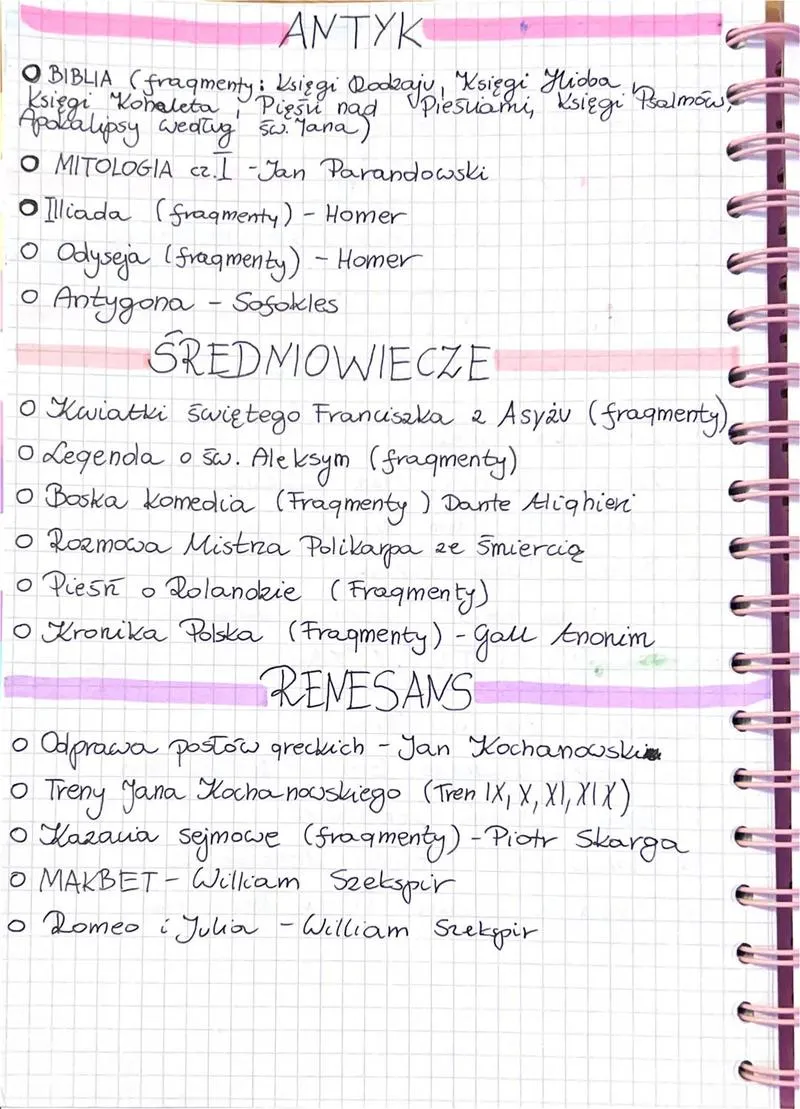 ANTYK
BIBLIA (fragmenty: Księgi Rodzaju, Księgi Hioba,
Księgi Koheleta, Pieśń nad Pieśniami, Księgi Psalmów,
Apokalipsy według św. Jana)
MITOLOGIA cz. I - Jan Parandowski
Illiada (fragmenty) - Homer
Odyseja (fragmenty) - Homer
Antygona - Sofokles
ŚREDNIOWIECZE
Kwiatki świętego Franciszka z Asyżu (fragmenty)
Legenda o św. Aleksym (fragmenty)
Boska komedia (Fragmenty) Dante Alighieri
Rozmowa Mistrza Polikarpa ze śmiercią
Pieśń o Rolandzie (Fragmenty)
Kronika Polska (Fragmenty) - Gall Anonim
RENESANS
Odprawa posłów greckich - Jan Kochanowski
Treny Jana Kochanowskiego (Tren IX, X, XI, XIX)
Kazania sejmowe (fragmenty) - Piotr Skarga
MAKBET - William Szekspir
Romeo i Julia - William Szekspir